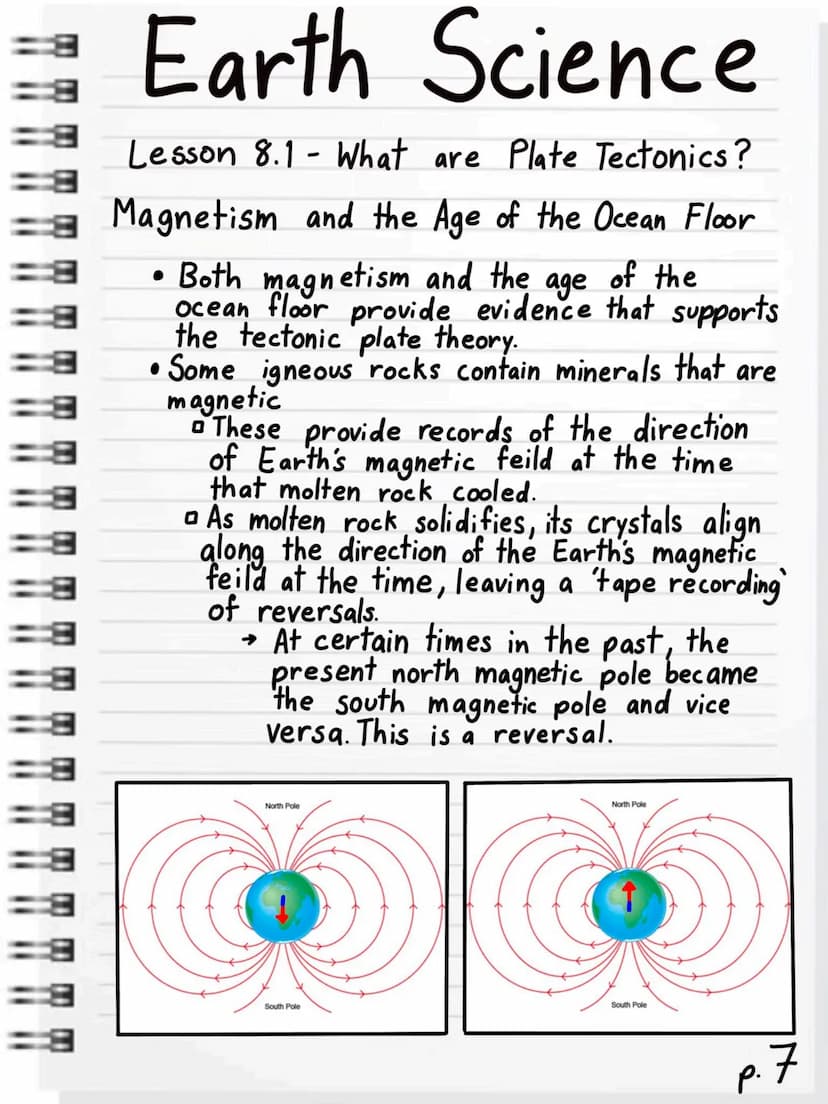 Earth Science
Lesson 8.1 - What are Plate Tectonics?
Magnetism and the Age of the Ocean Floor
• Both magnetism and the age of the
ocean floor provide evidence that supports
the tectonic plate theory.
• Some igneous rocks contain minerals that are
magnetic
▫ These provide records of the direction
of Earth's magnetic feild at the time
that molten rock cooled.
▫ As molten rock solidifies, its crystals align
along the direction of the Earth's magnetic
feild at the time, leaving a 'tape recording'
of reversals.
→ At certain times in the past, the
present north magnetic pole became
the south magnetic pole and vice
versa. This is a reversal.
North Pole
South Pole
North Pole
South Pole
p. 7